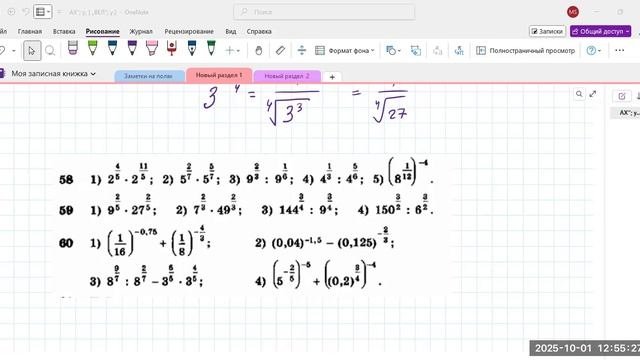 Поиск
MS
Файл Главная Вставка Рисование Журнал Рецензирование Вид Справка
Записки
Общий доступ
Формат фона
Полноэкранный просмотр
Моя записная книжка
Заметки на полях
Новый раздел 1
Новый раздел 2
+
3 = ⁴√3³ = ⁴√27
58 1) 2^(4/5) · 2^(11/5); 2) 5^(2/7) · 5^(5/7); 3) 9^(2/3) : 9^(1/6); 4) 4^(1/3) : 4^(5/6); 5) (8^(1/12))^(-4).
59 1) 9^(2/5) · 27^(2/5); 2) 7^(2/3) · 49^(2/3); 3) 144^(3/4) : 9^(3/4); 4) 150^(3/2) : 6^(3/2).
60 1) (1/16)^(-0,75) + (1/8)^(-4/3); 2) (0,04)^(-1,5) – (0,125)^(-2/3);
3) 8^(9/7) : 8^(2/7) – 3^(6/5) · 3^(4/5); 4) (5^(-2/5))^(-5) + ((0,2)^(3/4))^(-4).
2025-10-01 12:55:27